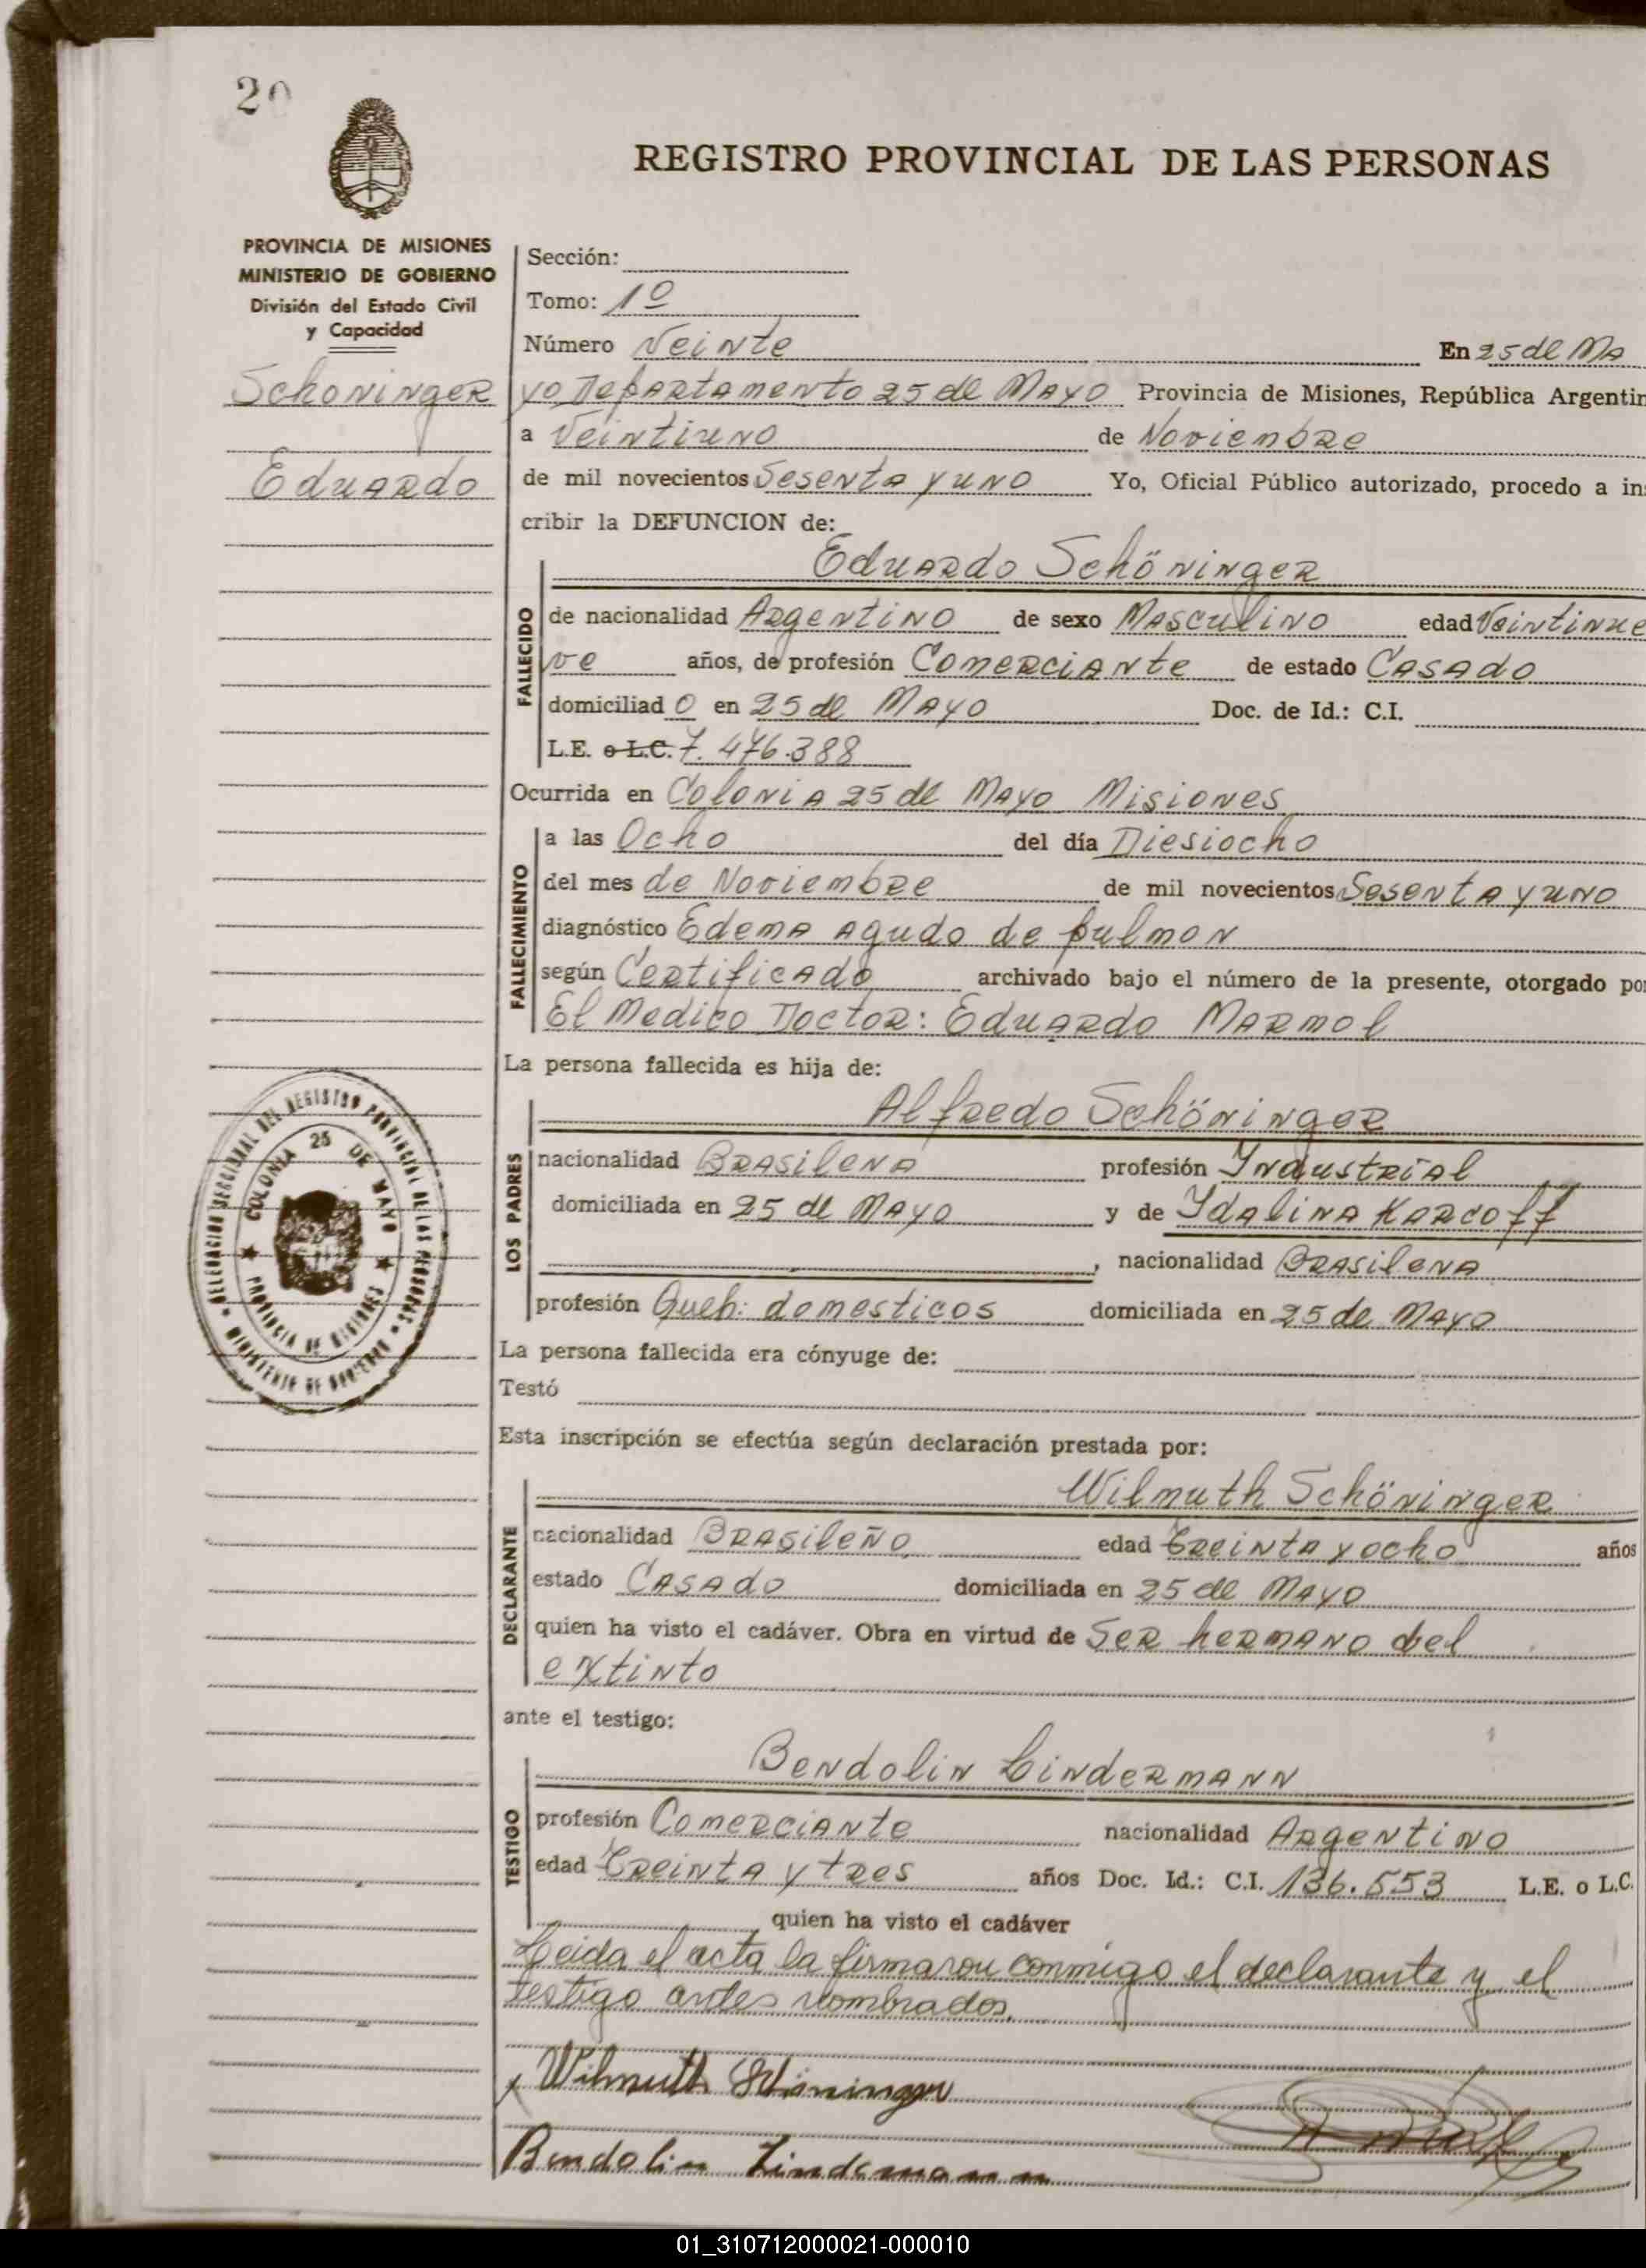 20
REGISTRO PROVINCIAL DE LAS PERSONAS
PROVINCIA DE MISIONES
MINISTERIO DE GOBIERNO
División del Estado Civil
y Capacidad
Schoninger
Eduardo
Sección:
Tomo: 1º
Número Veinte En 25 de Ma
yo Departamento 25 de Mayo Provincia de Misiones, República Argentin
a Veintiuno de Noviembre
de mil novecientos Sesenta y uno Yo, Oficial Público autorizado, procedo a ins
cribir la DEFUNCION de:
Eduardo Schöninger
FALLECIDO
de nacionalidad Argentino de sexo Masculino edad Veintinue
ve años, de profesión Comerciante de estado Casado
domiciliad o en 25 de Mayo Doc. de Id.: C.I.
L.E. o L.C. 7.476.388
Ocurrida en Colonia 25 de Mayo Misiones
FALLECIMIENTO
a las Ocho del día Diesiocho
del mes de Noviembre de mil novecientos Sesenta y uno
diagnóstico Edema agudo de pulmon
según Certificado archivado bajo el número de la presente, otorgado por
El Medico Doctor: Eduardo Marmol
La persona fallecida es hija de:
Alfredo Schöninger
LOS PADRES
nacionalidad Brasilena profesión Industrial
domiciliada en 25 de Mayo y de Ydalina Karcoff
, nacionalidad Brasilena
profesión Queh: domesticos domiciliada en 25 de Mayo
La persona fallecida era cónyuge de:
Testó
Esta inscripción se efectúa según declaración prestada por:
Wilmuth Schöninger
DECLARANTE
nacionalidad Brasileño edad treinta y ocho años
estado Casado domiciliada en 25 de Mayo
quien ha visto el cadáver. Obra en virtud de Ser hermano del
extinto
ante el testigo:
Bendolin Lindermann
TESTIGO
profesión Comerciante nacionalidad Argentino
edad treinta y tres años Doc. Id.: C.I. 136.553 L.E. o L.C.
quien ha visto el cadáver
Leida el acta la firmaron conmigo el declarante y el
testigo antes nombrados.
Wilmuth Schöninger
Bendolin Lindemann
DELEGACION SECCIONAL DEL REGISTRO PROVINCIAL DE LAS PERSONAS
MINISTERIO DE GOBIERNO
COLONIA 25 DE MAYO
PROVINCIA DE MISIONES
01_310712000021-000010